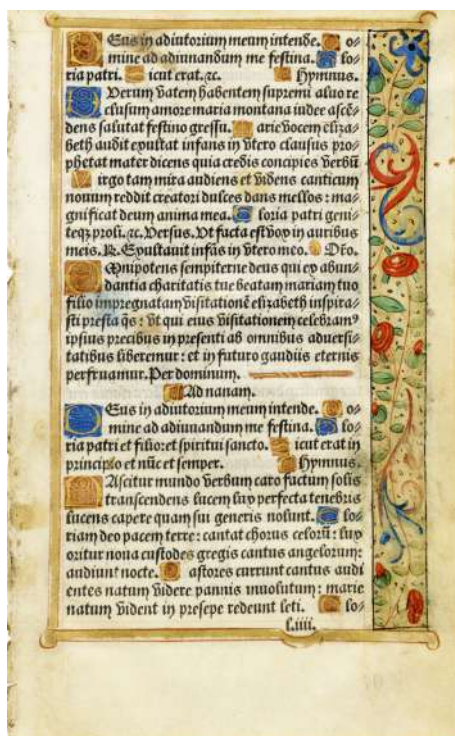 DEus in adiutorium meum intende. D o⸗
mine ad adiuuandum me festina. G lo⸗
ria patri. S icut erat. ⁊c. Hymnus.
Uerum vatem habentem supremi aluo re
clusum amore maria montana iudee ascē⸗
dens salutat festino gressu. M arie vocem eliza⸗
beth audit exultat infans in vtero clausus pro⸗
phetat mater dicens quia credis concipies verbū
V irgo tam mira audiens et videns canticum
nouum reddit creatori dulces dans mellos: ma⸗
gnificat deum anima mea. G loria patri geni⸗
teqꝫ proli. ⁊c. Versus. Vt facta est vox in auribus
meis. R. Exultauit infās in vtero meo. Oro.
OMnipotens sempiterne deus qui ex abun⸗
dantia charitatis tue beatam mariam tuo
filio impregnatam visitationē elizabeth inspira⸗
sti presta q̄s: vt qui eius visitationem celebramꝰ
ipsius precibus in presenti ab omnibus aduersi⸗
tatibus liberemur: et in futuro gaudiis eternis
perfruamur. Per dominum.
Ad nanam.
DEus in adiutorium meum intende. D o⸗
mine ad adiuuandum me festina. G lo⸗
ria patri et filio: et spiritui sancto. S icut erat in
principio et nūc et semper. Hymnus.
NAscitur mundo verbum caro factum solis
transcendens lucem lux perfecta tenebris
lucens capere quam sui generis nolunt. G lo⸗
riam deo pacem terre: cantat chorus celorū: lux
oritur noua custodes gregis cantus angelorum:
audiunt nocte. P astores currunt cantus audi
entes natum videre pannis inuolutum: marie
natum vident in presepe redeunt leti. G lo⸗
l.iiii.